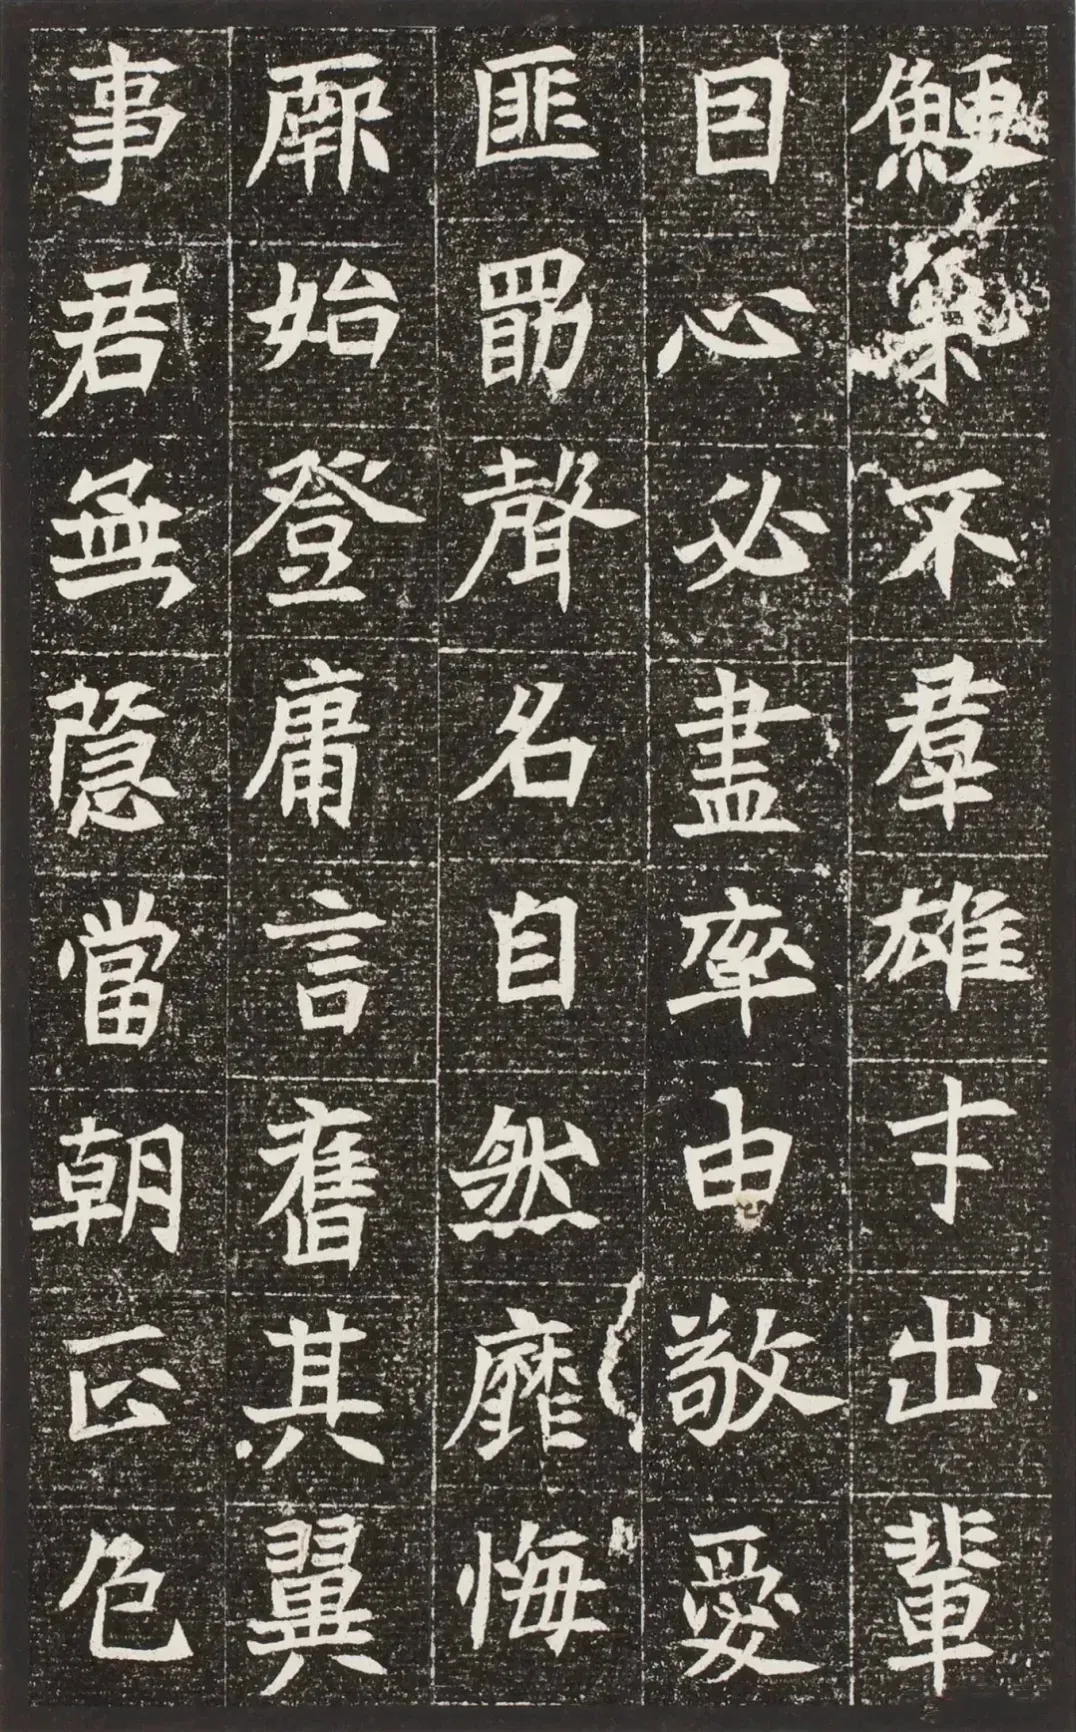 鯁不羣雄才出輩
因心必盡率由敬愛
匪勖聲名自然靡悔
始登庸言奮其翼
事君無隱當朝正色